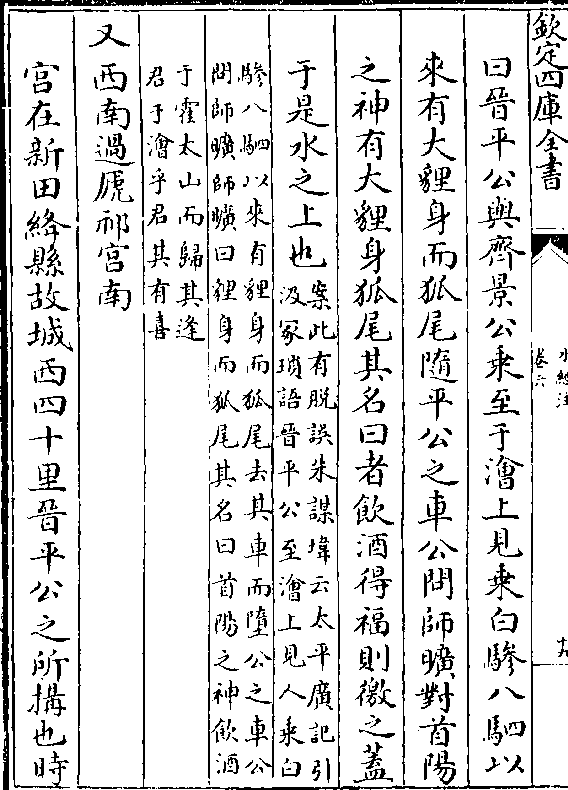 欽定四庫全書
水經注
卷六
十九
曰晉平公與齊景公乗至于澮上見乗白驂八駟以
來有大貍身而狐尾隨平公之車公問師曠對首陽
之神有大貍身狐尾其名曰者飲酒得福則徼之蓋
于是水之上也案此有脱誤朱謀㙔云太平廣記引
汲冢瑣語晉平公至澮上見人乗白
驂八駟以來有貍身而狐尾去其車而墮公之車公
問師曠師曠曰貍身而狐尾其名曰首陽之神飲酒
于霍太山而歸其逢
君于澮乎君其有喜
又西南過虒祁宫南
宫在新田絳縣故城西四十里晉平公之所搆也時